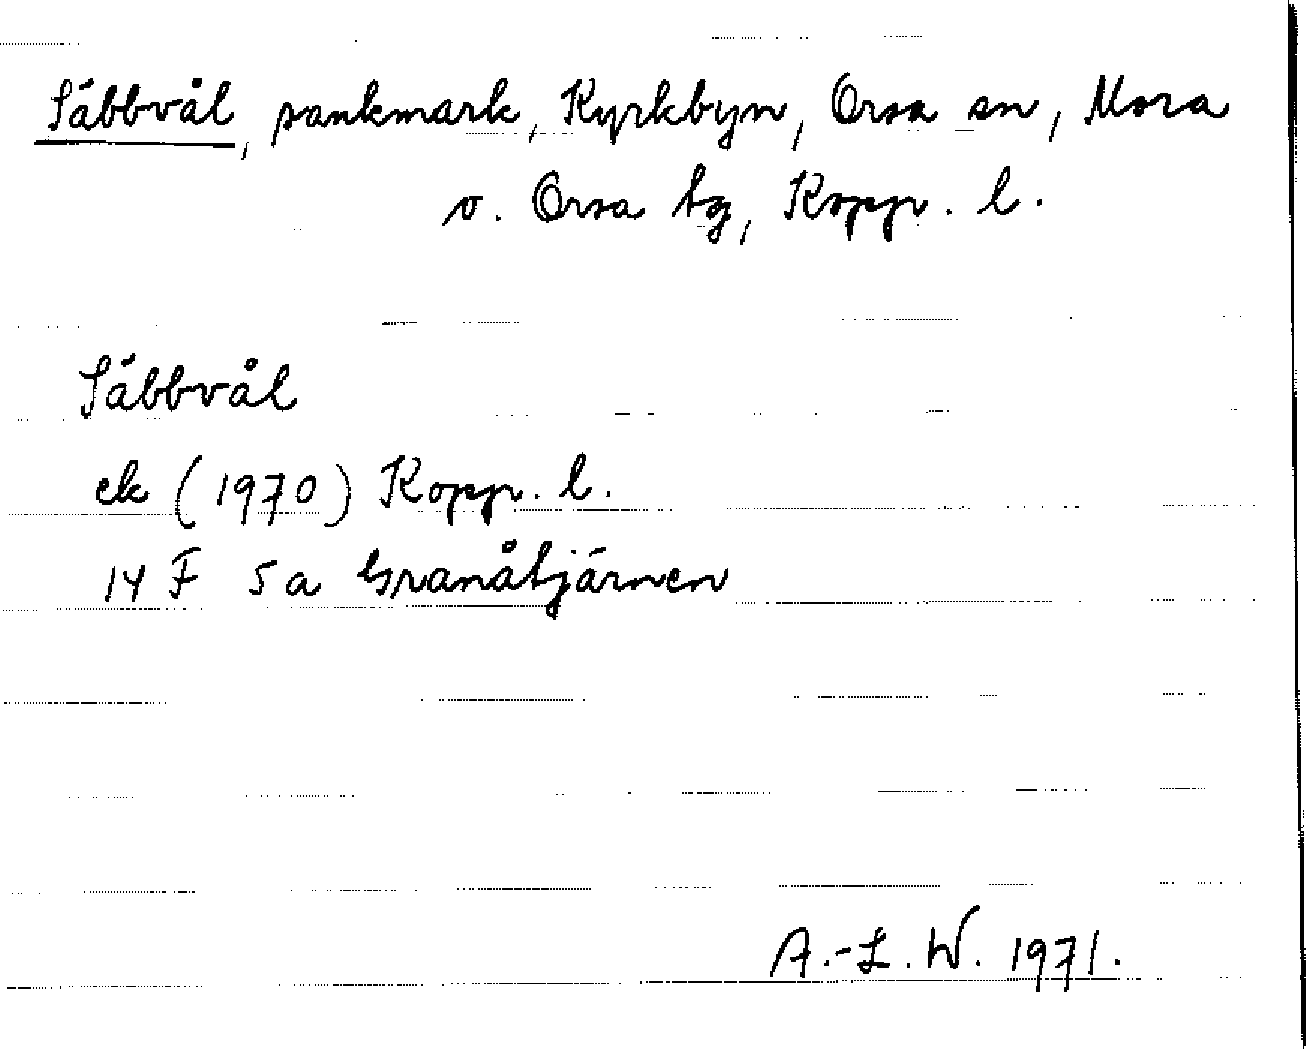 Säbbvål, sankmark, Kyrkbyn, Orsa sn, Mora
o. Orsa tg, Kopp. l.
Säbbvål
ek (1970) Kopp. l.
14 F 5a Granåtjärnen
A.-L. W. 1971.